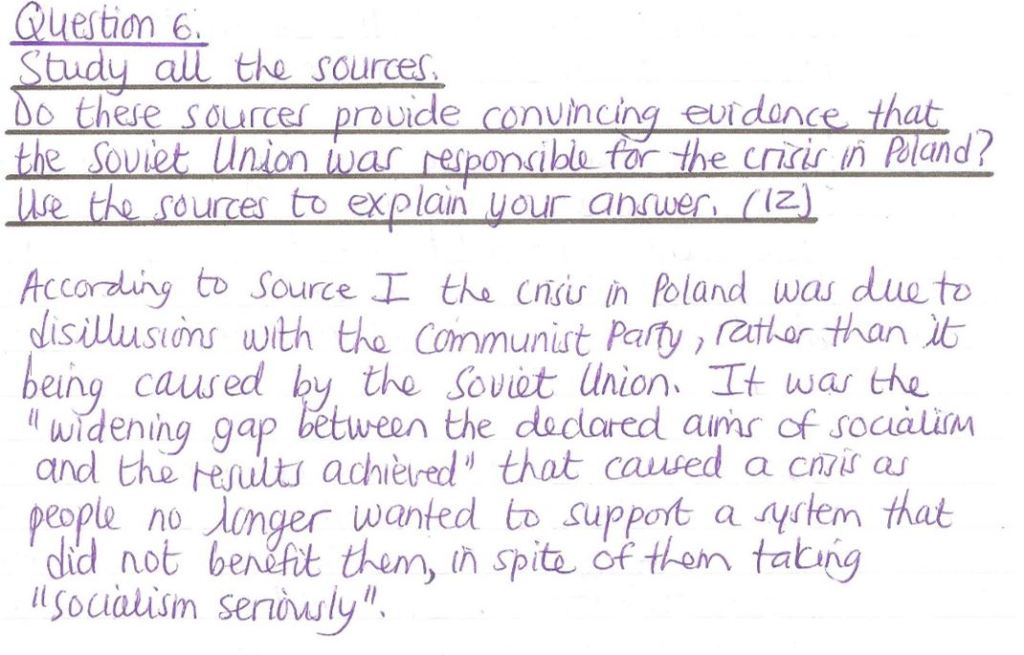 Question 6.
Study all the sources.
Do these sources provide convincing evidence that
the Soviet Union was responsible for the crisis in Poland?
Use the sources to explain your answer. (12)
According to Source I the crisis in Poland was due to
disillusions with the Communist Party, rather than it
being caused by the Soviet Union. It was the
"widening gap between the declared aims of socialism
and the results achieved" that caused a crisis as
people no longer wanted to support a system that
did not benefit them, in spite of them taking
"socialism seriously".